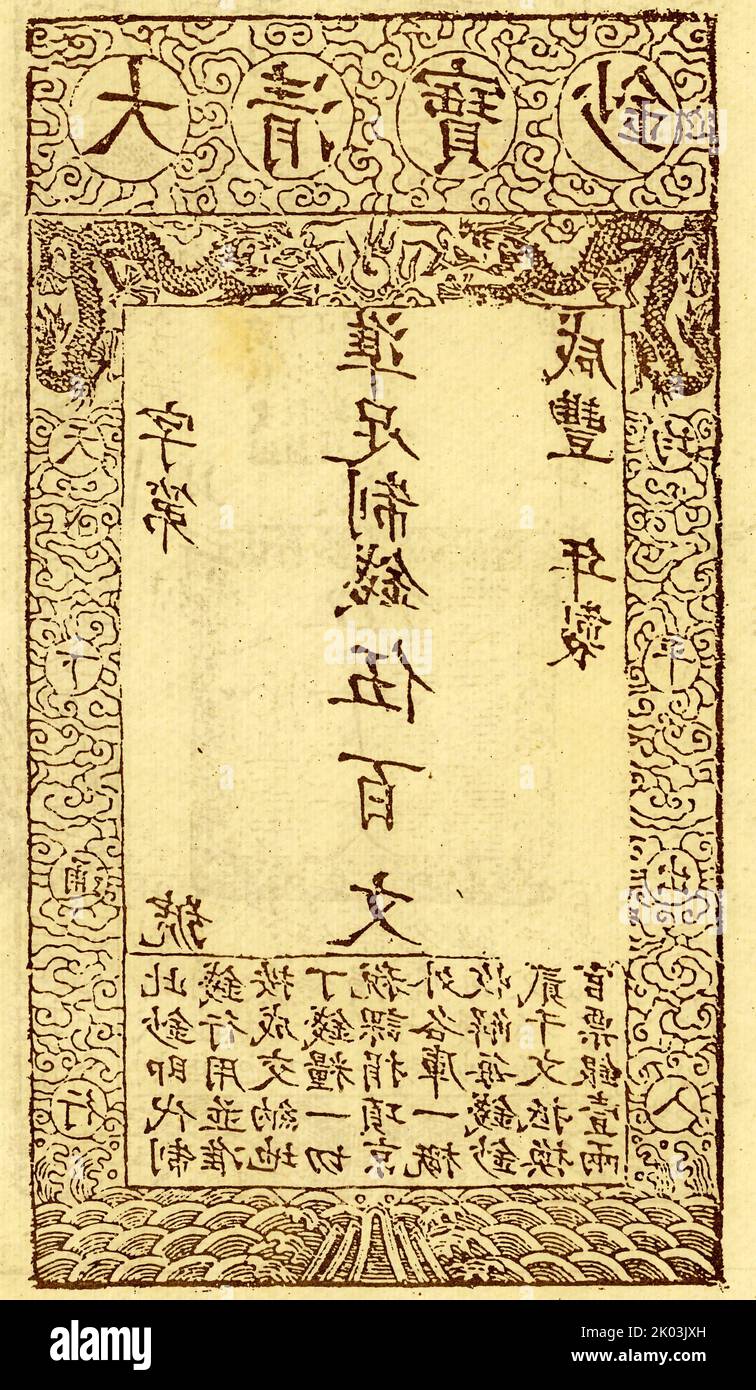 大清寶鈔
天下通行
均平出入
字第 號
準足制錢伍百文
咸豐 年製
此鈔即代制
錢行用並准
按成交納地
丁錢糧一切
稅課捐項京
外各庫一概
收解每錢鈔
貳千文抵換
官票銀壹兩
alamy
Image ID: 2K03JXH
www.alamy.com